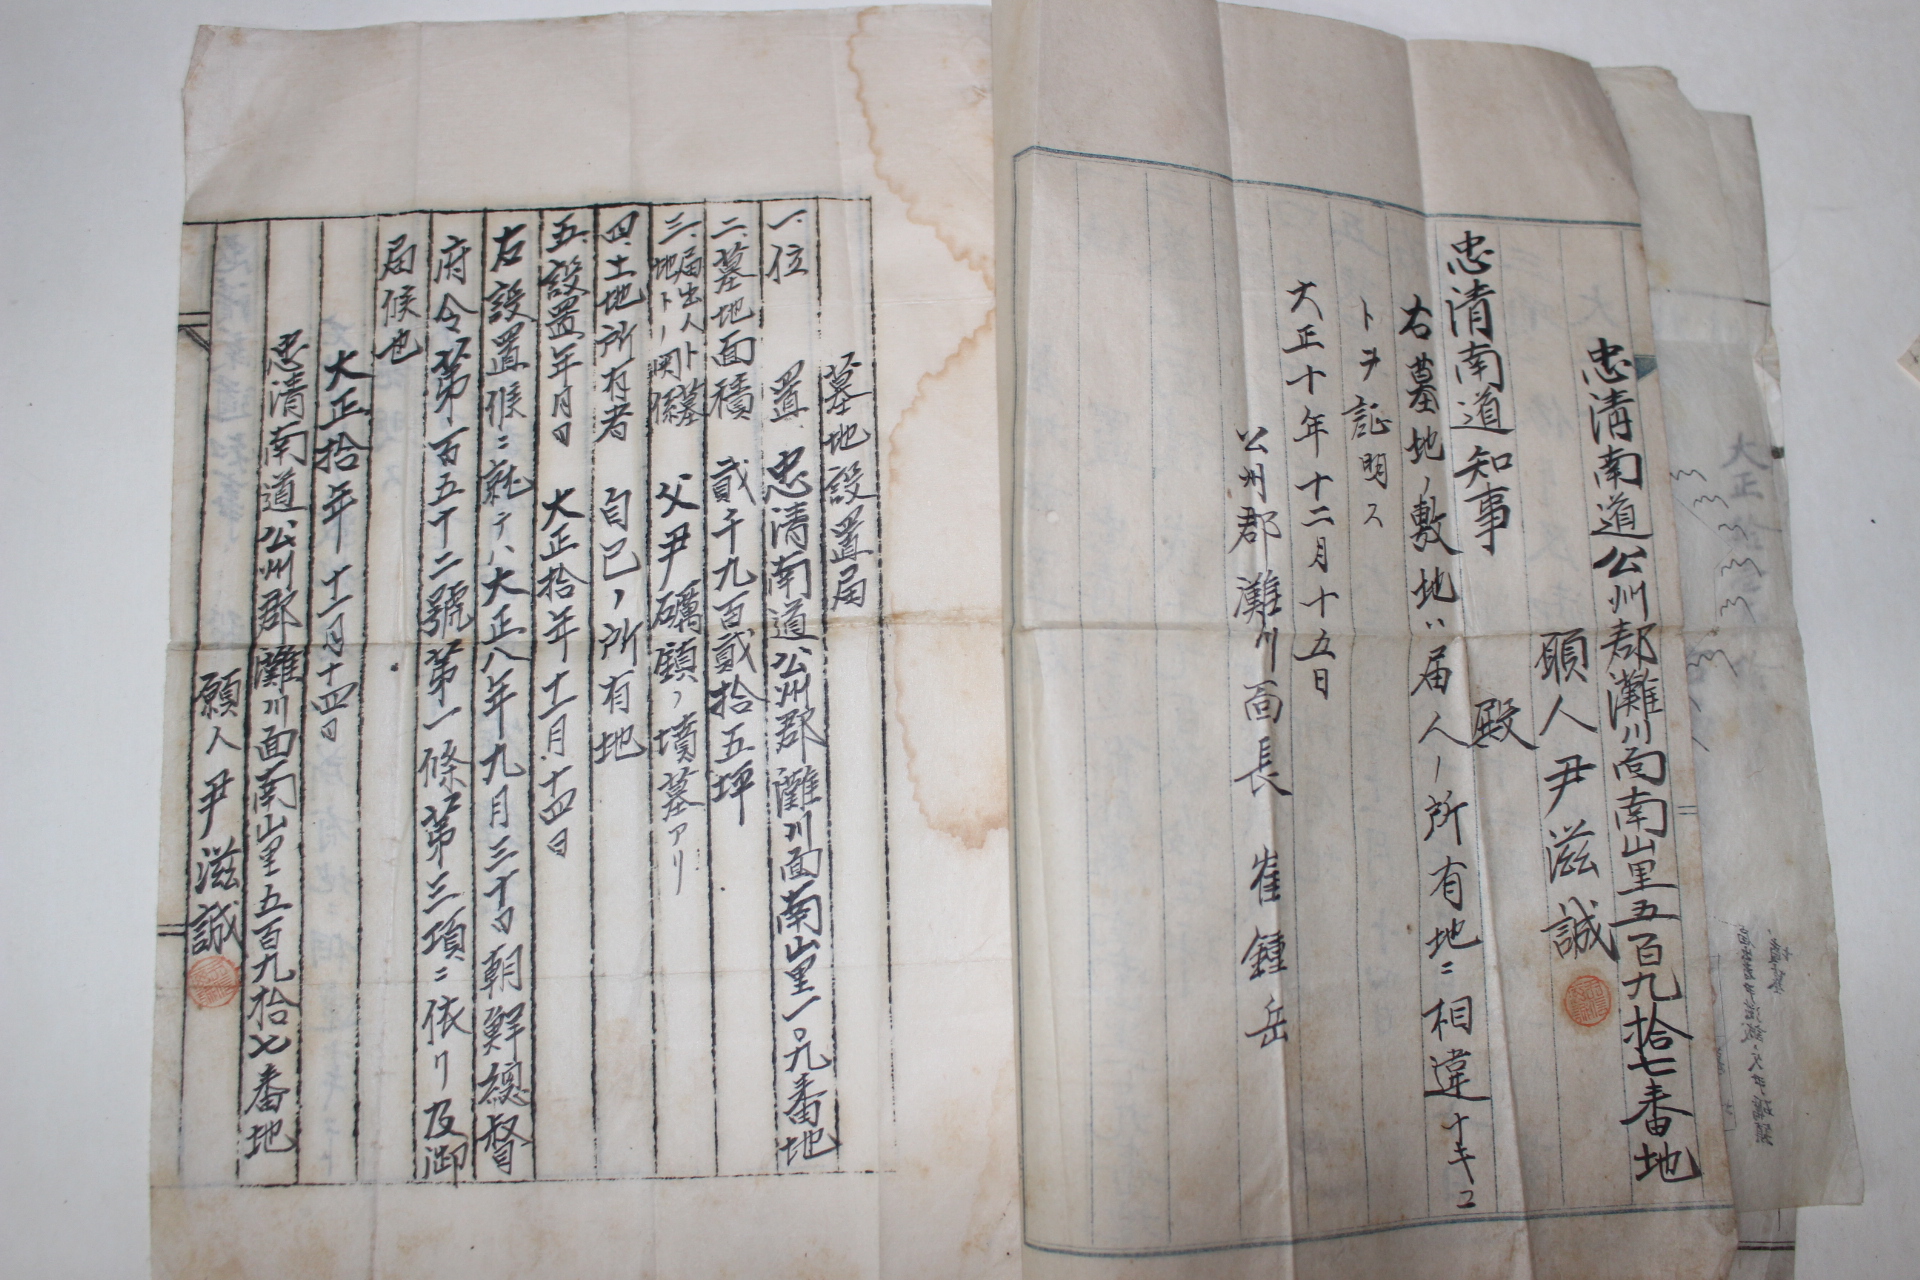 忠淸南道公州郡灘川面南山里五百九拾七番地
願人尹滋誠
忠清南道知事 殿
右墓地ノ敷地ハ届人ノ所有地ニ相違ナキコ
トヲ証明ス
大正十年十二月十五日
公州郡灘川面長 崔鍾岳
墓地設置届
一、位 置 忠清南道公州郡灘川面南山里一〇九番地
二、墓地面積 貮千九百貮拾五坪
三、届出人ト墓地トノ関係 父尹礪鎮ノ墳墓アリ
四、土地所有者 自己ノ所有地
五、設置年月日 大正拾年十一月十四日
右設置候ニ就テハ大正八年九月三十日朝鮮總督
府令第百五十二號第一條第三項ニ依リ及御
届候也
大正拾年十一月十四日
忠清南道公州郡灘川面南山里五百九拾七番地
願人尹滋誠